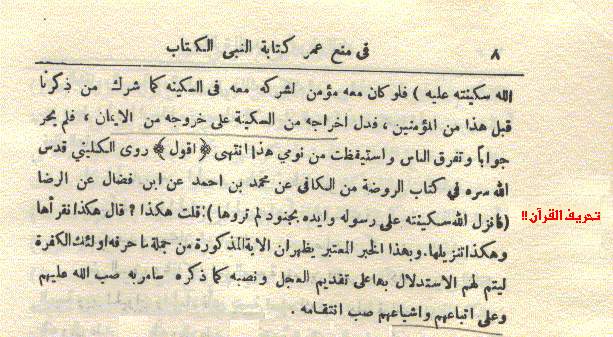 ٨ في منع عمر كتابة النبي الكتاب
الله سكينته عليه ) فلو كان معه مؤمن لشركه معه في السكينه كما شرك من ذكرنا
قبل هذا من المؤمنين ، فدل اخراجه من السكينة على خروجه من الايمان ، فلم يحر
جواباً وتفرق الناس واستيقظت من نومي هذا انتهى ﴿ اقول ﴾ روى الكليني قدس
الله سره في كتاب الروضة من الكافي عن محمد بن احمد عن ابن فضال عن الرضا
(فانزل الله سكينته على رسوله وايده بجنود لم تروها ) : قلت هكذا ؟ قال هكذا نقرأها
تحريف القرآن!!
وهكذا تنزيلها. وبهذا الخبر المعتبر يظهر ان الاية المذكورة من جملة ما حرفه اولئك الكفرة
ليتم لهم الاستدلال بها على تقديم العجل ونصبه كما ذكره سامريه صب الله عليهم
وعلى اتباعهم واشياعهم صب انتقامه .